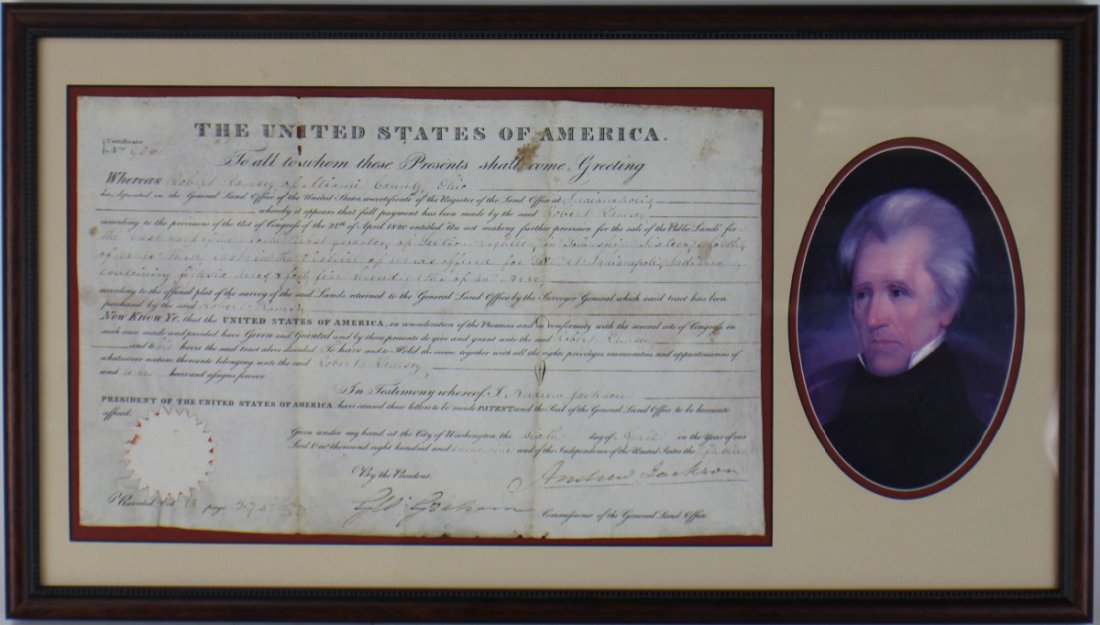 THE UNITED STATES OF AMERICA.
Certificate
No. 906
To all to whom these Presents shall come, Greeting
Whereas Robert Ramsey, of Miami County, Ohio
has deposited in the General Land Office of the United States, a certificate of the Register of the Land Office at Indianapolis
whereby it appears that full payment has been made by the said Robert Ramsey
according to the provisions of the Act of Congress of the 24th of April 1820 entitled An act making further provision for the sale of the Public Lands for
the east half of the south west quarter, of Section eighteen, in Township sixteen, North,
of range three east in the District of Lands offered for Sale at Indianapolis, Indiana
containing acres & forty five hundredths of an Acre,
according to the official plat of the survey of the said Lands, returned to the General Land Office by the Surveyor General which said tract has been
purchased by the said Robert Ramsey
Now Know Ye, that the UNITED STATES OF AMERICA, in consideration of the Premises and in conformity with the several acts of Congress, in
such case made and provided have Given and Granted and by these presents do give and grant unto the said Robert Ramsey
and to his heirs the said tract above described To have and to Hold the same, together with all the rights privileges immunities and appurtenances of
whatsoever nature thereunto belonging, unto the said Robert Ramsey
and to his heirs and assigns forever
In Testimony whereof, I, Andrew Jackson
PRESIDENT OF THE UNITED STATES OF AMERICA have caused these letters to be made PATENT and the Seal of the General Land Office to be hereunto
affixed.
Given under my hand, at the City of Washington, the sixth day of April in the Year of our
Lord One thousand eight hundred and thirty one and of the Independence of the United States the fifty fifth
By the President. Andrew Jackson
Recorded, Vol 13 page 275 Commissioner of the General Land Office